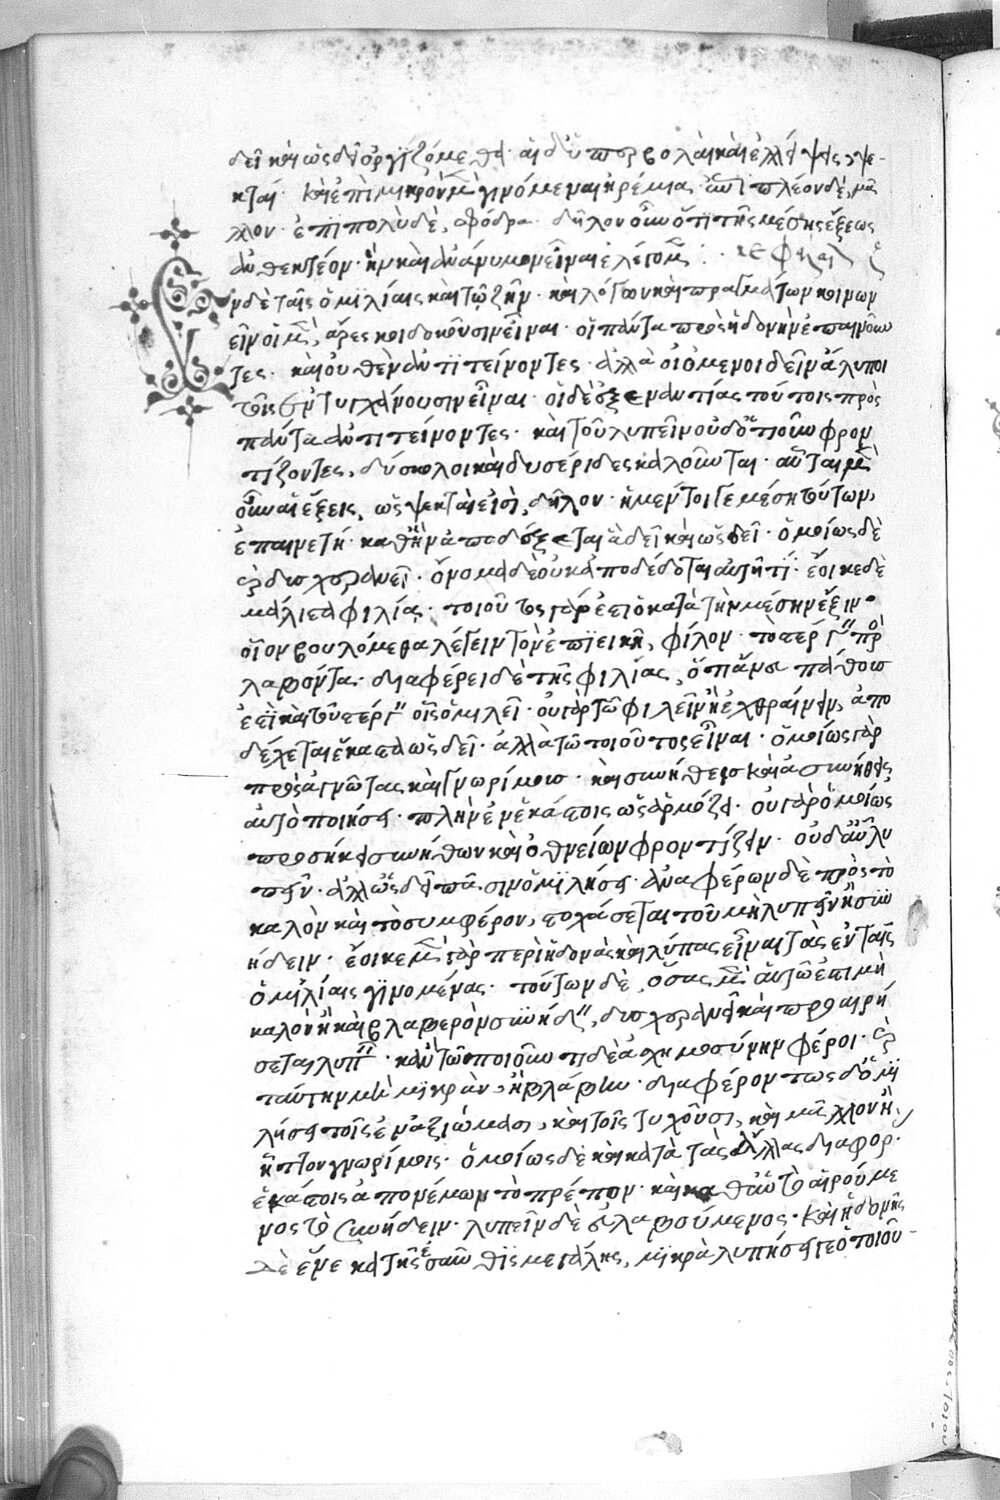 δεῖ καὶ ὡς δεῖ ὀργιζόμεθα· αἱ δ' ὑπερβολαὶ καὶ ἐλλείψεις ψε-
κταί· καὶ ἐπὶ μικρὸν μὲν γινόμεναι ἠρέμα· ἐπὶ πλέον δὲ, μᾶ
λλον· ἐπὶ πολὺ δὲ, σφόδρα· δῆλον οὖν ὅτι τῆς μέσης ἕξεως
ἀνθεκτέον·
Ἐν δὲ ταῖς ὁμιλίαις καὶ τῷ ζῆν· καὶ λόγων καὶ πραγμάτων κοινων
εῖν οἱ μὲν, ἄρεσκοι δοκοῦσιν εἶναι· οἱ πάντα πρὸς ἡδονὴν ἐπαινοῦν
τες· καὶ οὐθὲν ἀντιτείνοντες· ἀλλὰ οἰόμενοι δεῖν ἄλυποι
τοῖς ἐντυγχάνουσιν εἶναι· οἱ δ' ἐξ ἐναντίας τούτοις πρὸς
πάντα ἀντιτείνοντες· καὶ τοῦ λυπεῖν οὐδ' ὁτιοῦν φρον
τίζοντες, δύσκολοι καὶ δυσέριδες καλοῦνται· αὗται μὲν
οὖν αἱ ἕξεις, ὡς ψεκταί εἰσι, δῆλον· ἡ μέντοι γε μέση τούτων,
ἐπαινετή· καθ' ἣν ἀποδέξεται ἃ δεῖ καὶ ὡς δεῖ· ὁμοίως δὲ
καὶ δυσχερανεῖ· ὄνομα δὲ οὐκ ἀποδέδοται αὐτῇ τι· ἔοικε δὲ
μάλιστα φιλίᾳ· τοιοῦτος γάρ ἐστι ὁ κατὰ τὴν μέσην ἕξιν·
οἷον βουλόμεθα λέγειν τὸν ἐπιεικῆ, φίλον· τὸ στέργειν προ
λαβόντα· διαφέρει δὲ τῆς φιλίας, ὅτι ἄνευ πάθους
ἐστὶ καὶ τοῦ στέργειν οἷς ὁμιλεῖ· οὐ γὰρ τῷ φιλεῖν ἢ ἐχθραίνειν, ἀπο
δέχεται ἕκαστα ὡς δεῖ· ἀλλὰ τῷ τοιοῦτος εἶναι· ὁμοίως γὰρ
πρὸς ἀγνῶτας καὶ γνωρίμους· καὶ συνήθεις καὶ ἀσυνήθεις
αὐτὸ ποιήσει· πλὴν ἐν ἑκάστοις ὡς ἁρμόζει· οὐ γὰρ ὁμοίως
προσήκει συνήθων καὶ ὀθνείων φροντίζειν· οὐδ' αὖ λυ
πεῖν· ἀλλ' ὡς δεῖ πᾶσιν ὁμιλήσει· ἀναφέρων δὲ πρὸς τὸ
καλὸν καὶ τὸ συμφέρον, στοχάσεται τοῦ μὴ λυπεῖν ἢ συν
ήδειν· ἔοικε μὲν γὰρ περὶ ἡδονὰς καὶ λύπας εἶναι τὰς ἐν ταῖς
ὁμιλίαις γινομένας· τούτων δὲ, ὅσας μὲν αὐτῷ ἐστι μὴ
καλὸν ἢ καὶ βλαβερὸν συνήδειν, δυσχερανεῖ καὶ προαιρή
σεται λυπεῖν· κἂν τῷ ποιοῦντι δὲ ἀσχημοσύνην φέροι· καὶ
ταύτην μὴ μικρὰν, ἢ βλάβην· διαφερόντως δ' ὁμι
λήσει τοῖς ἐν ἀξιώμασι, καὶ τοῖς τυχοῦσι, καὶ μᾶλλον ἢ
ἧττον γνωρίμοις· ὁμοίως δὲ καὶ κατὰ τὰς ἄλλας διαφορ·
ἑκάστοις ἀπονέμων τὸ πρέπον· καὶ καθ' αὑτὸ αἱρούμε
νος τὸ συνήδειν· λυπεῖν δὲ εὐλαβούμενος· καὶ ἡδονῆς
δὲ ἕνεκα τῆς ἐσαῦθις μεγάλης, μικρὰ λυπήσει γε ὁ τοιοῦ-